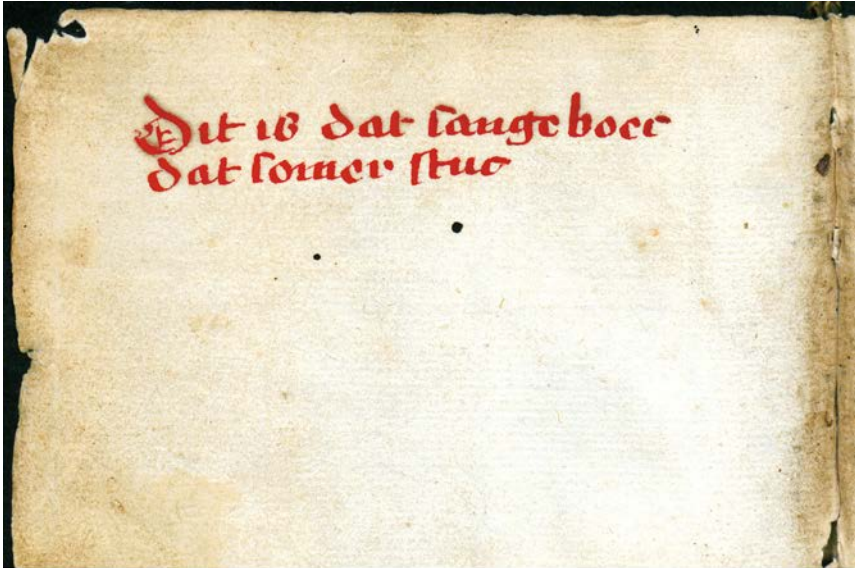 Dit is dat sangeboec
dat somer stuc